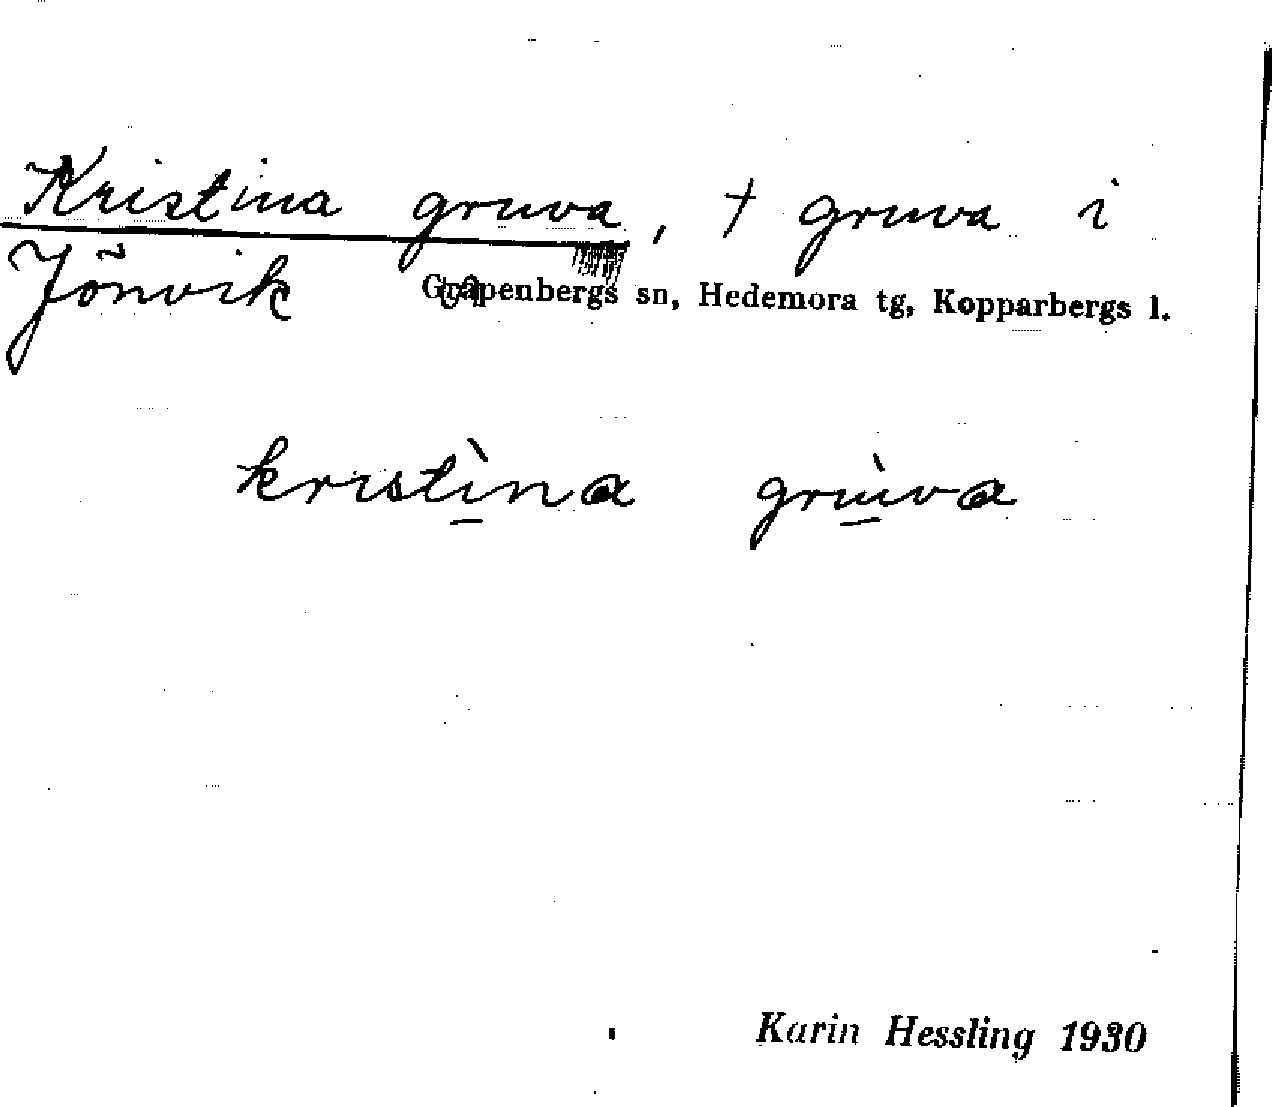 Kristina gruva, † gruva i
Jönvik
Garpenbergs sn, Hedemora tg, Kopparbergs l.
kristìna grùva
Karin Hessling 1930